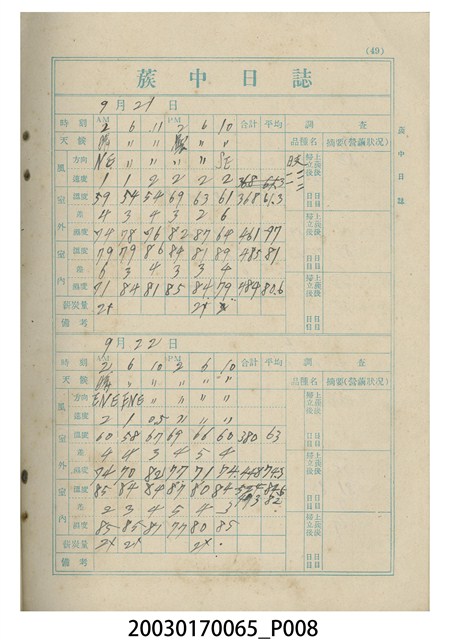 (49)
蔟中日誌
蔟中日誌
9月21日
時刻 AM 2 6 11 PM 2 6 10 合計 平均 調查
天候 〃 〃 〃 〃 品種名 摘要(蠶繭狀況)
風 方向 NE 〃 〃 〃 〃 SE
速度 1 1 2 2 2 2 368 61.3
室外 溫度 59 54 54 69 63 61 368 61.3
差 4 3 4 3 2 6
濕度 74 78 76 82 87 64 461 77
室內 溫度 79 79 86 84 81 89 485 81
差 6 3 4 3 3 4
濕度 71 84 81 85 84 79 484 80.6
薪炭量 2x 2x
備考
歸立後 上蔟後
日目 日目
9月22日
時刻 AM 2 6 10 PM 2 6 10 合計 平均 調查
天候 〃 〃 〃 〃 〃 品種名 摘要(蠶繭狀況)
風 方向 ENE ENE 〃 〃 〃 〃
速度 2 1 0.5 〃 〃 〃
室外 溫度 60 58 67 69 66 60 380 63
差 4 4 3 4 5 4
濕度 74 70 82 77 71 74 448 74.3
室內 溫度 85 84 84 87 80 84
493 82
差 2 3 4 5 4 3
濕度 85 85 81 77 80 85
薪炭量 2x 2x 2x
備考
歸立後 上蔟後
日目 日目
20030170065_P008